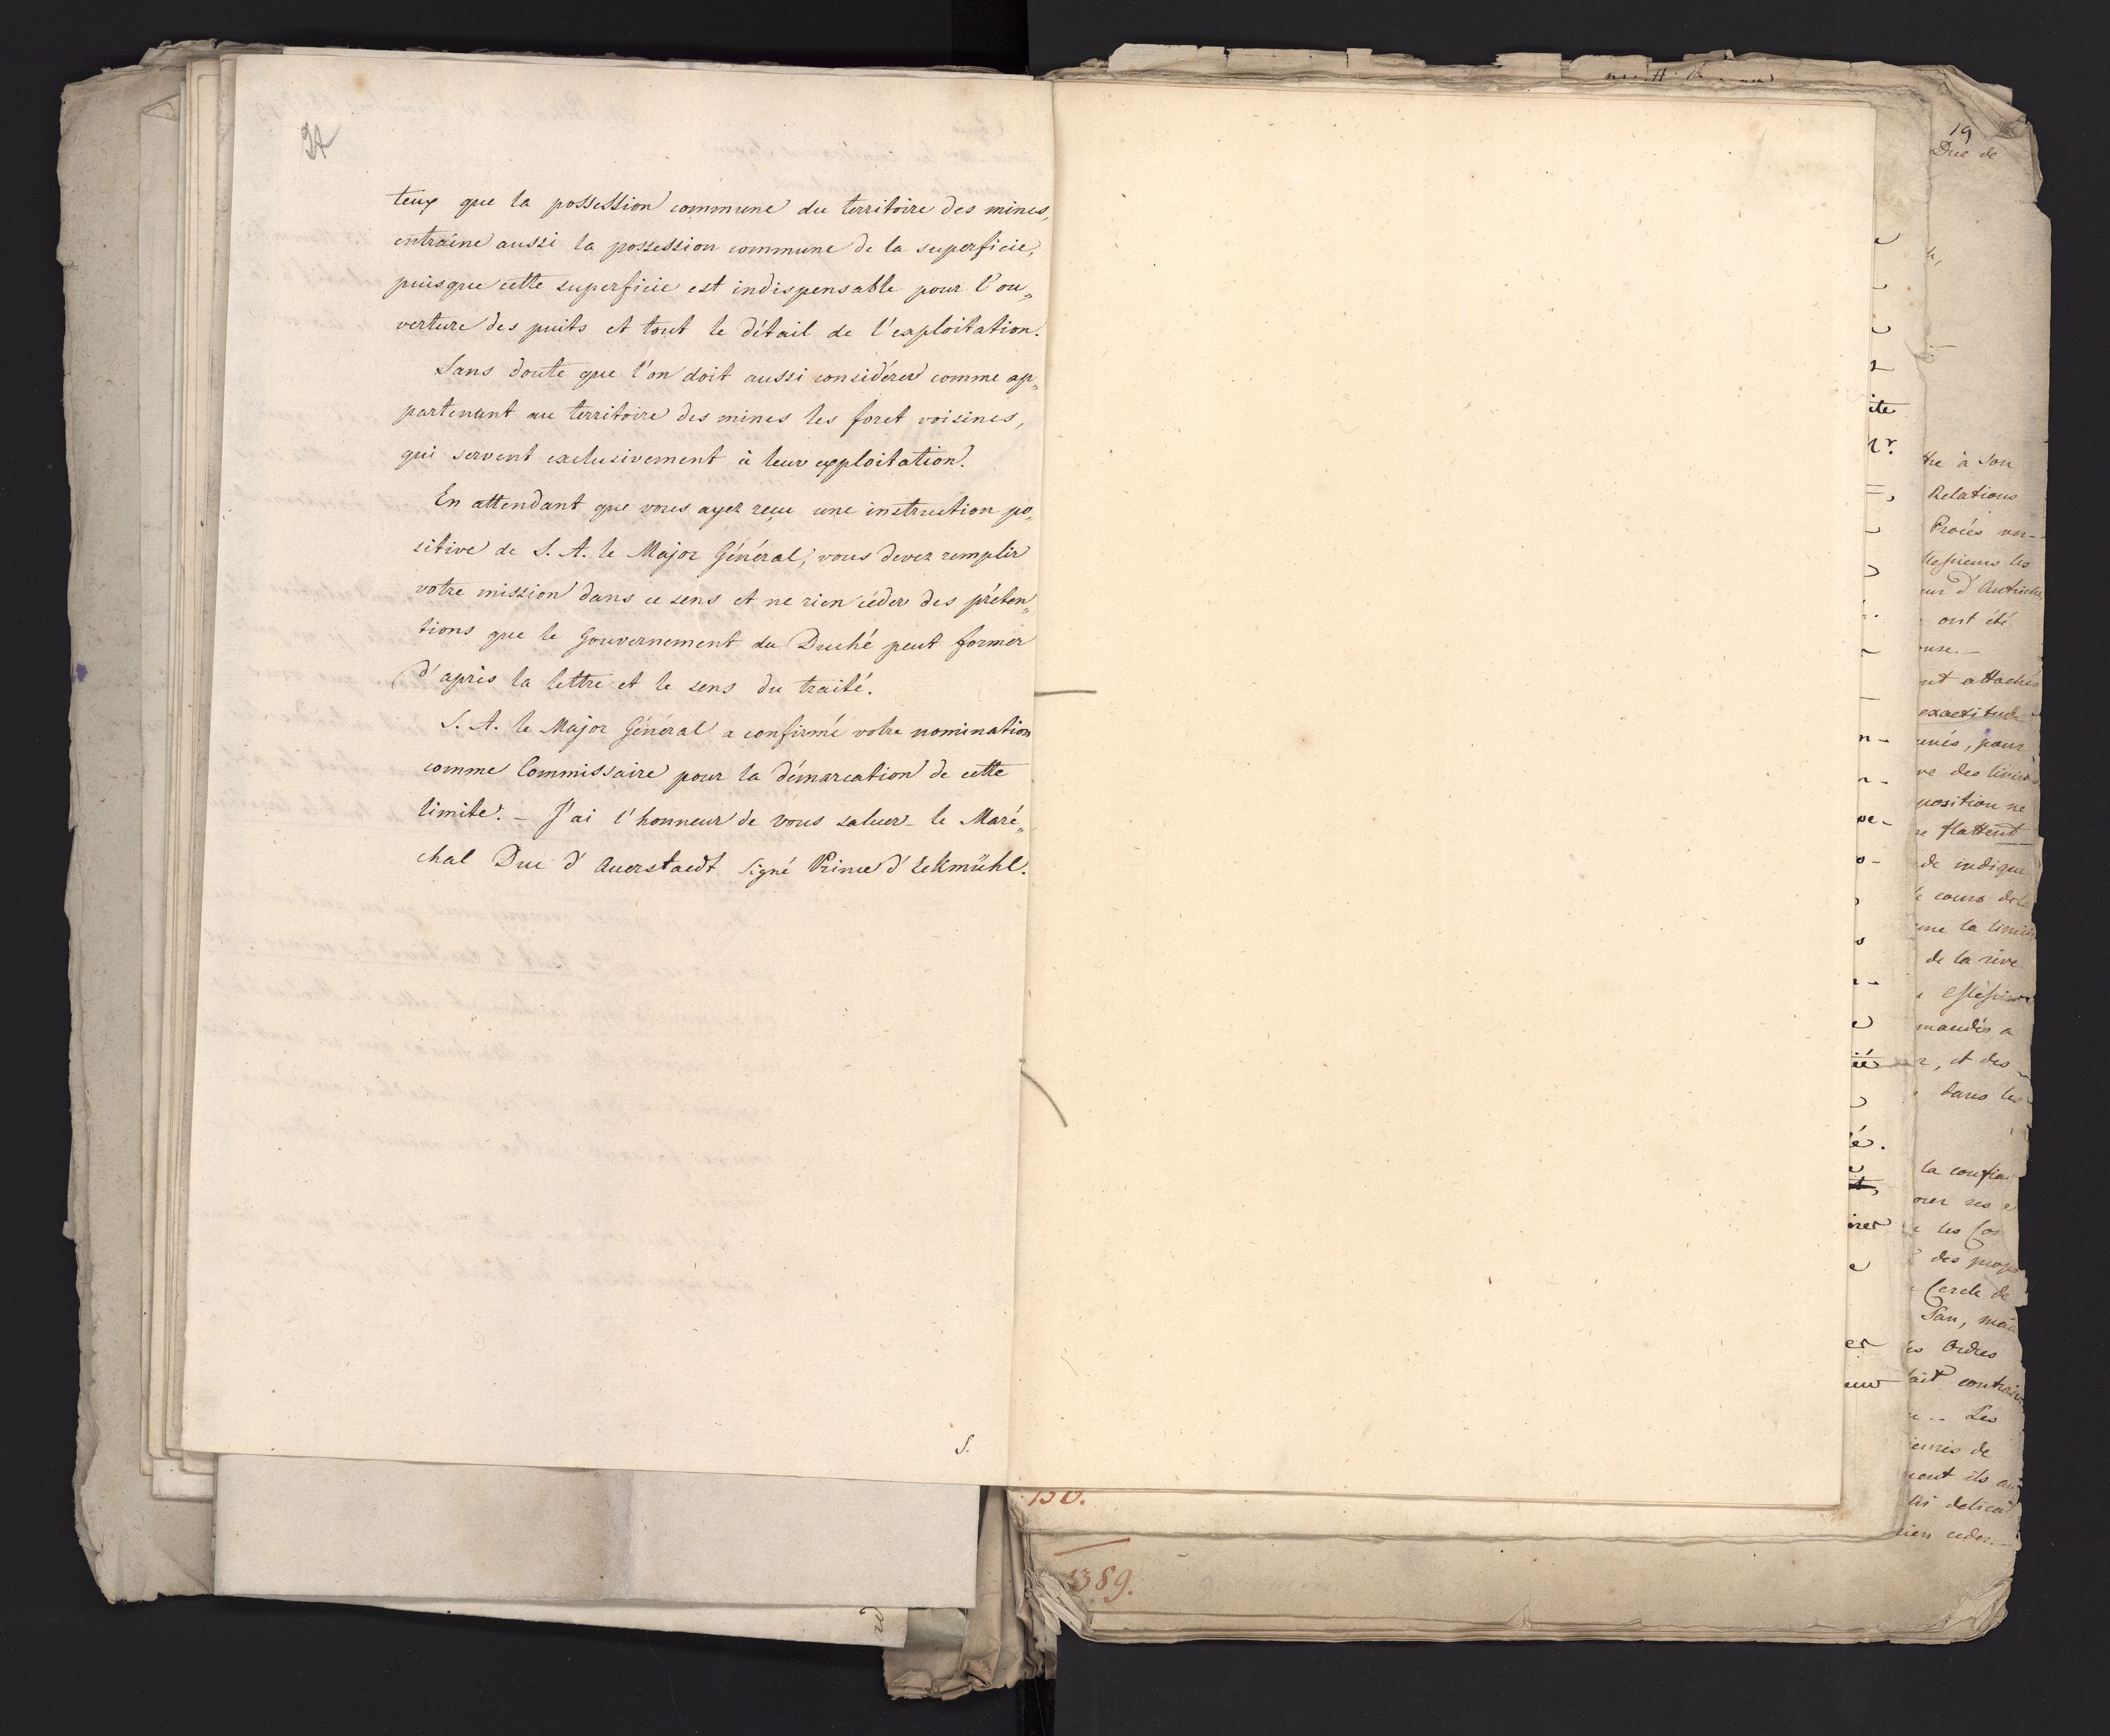 teux que la possession commune du territoire des mines,
entraîne aussi la possession commune de la superficie,
puisque cette superficie est indispensable pour l'ou„
verture des puits et tout le détail de l'exploitation.
Sans doute que l'on doit aussi considérer comme ap„
partenant au territoire des mines les foret voisines,
qui servent exclusivement à leur exploitation.
En attendant que vous ayez reçu une instruction po„
sitive de S. A. le Major Général, vous devez remplir
votre mission dans ce sens et ne rien céder des préten„
tions que le Gouvernement du Duché peut former
d'après la lettre et le sens du traité.
S. A. le Major Général a confirmé votre nomination
comme Commissaire pour la démarcation de cette
limite. – J'ai l'honneur de vous saluer – le Maré„
chal Duc d'Auerstaedt signé Prince d'Eckmühl.
S.
19
Duc de
ite
n-
er
389.
tre à son
Relations
Procés ver-
d'Autriche
ont été
nt attachés
exactitude
, pour
position ne
flattent
de indique
cours de la
de la rive
mandés a
, et des
dans les
la confia
des propo
Cercle de
San,
Ordres
fait
Les
de